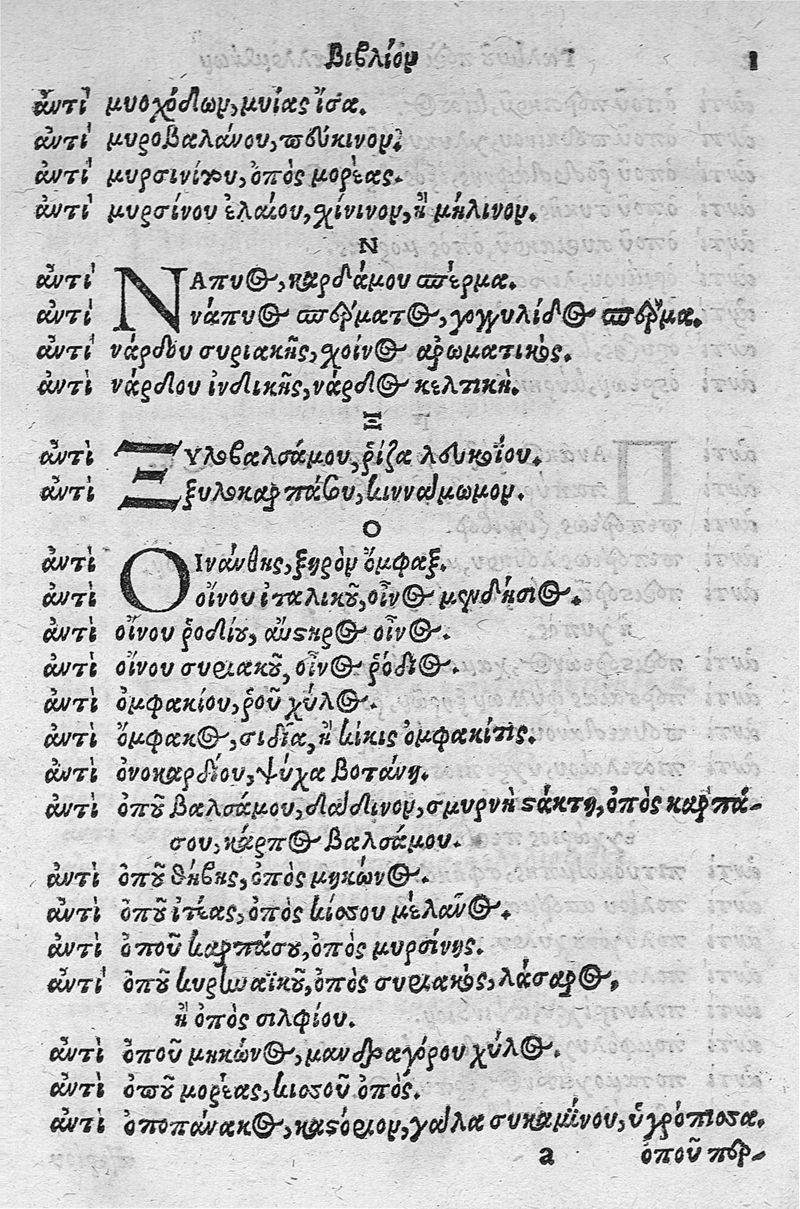 Βιβλίον 1
ἀντὶ μυοχόδων, μυίας ἴσα.
ἀντὶ μυροβαλάνου, πεύκινον.
ἀντὶ μυρσινίνου, ὀπὸς μορέας.
ἀντὶ μυρσίνου ἐλαίου, χίνινον, ἢ μήλινον.
Ν
ἀντὶ ΝΑπυος, καρδάμου σπέρμα.
ἀντὶ νάπυος σπέρματος, γογγυλίδος σπέρμα.
ἀντὶ νάρδου συριακῆς, χοῖνος ἀρωματικός.
ἀντὶ νάρδου ἰνδικῆς, νάρδος κελτική.
Ξ
ἀντὶ ΞΥλοβαλσάμου, ῥίζα λευκοΐου.
ἀντὶ ξυλοκαρπάσου, κιννάμωμον.
Ο
ἀντὶ ΟΙνάνθης, ξηρὸν ὄμφαξ.
ἀντὶ οἴνου ἰταλικοῦ, οἶνος μενδήσιος.
ἀντὶ οἴνου ῥοδίου, αὐστηρὸς οἶνος.
ἀντὶ οἴνου συριακοῦ, οἶνος ῥόδιος.
ἀντὶ ὀμφακίου, ῥοῦ χύλος.
ἀντὶ ὄμφακος, σιδία, ἢ κίκις ὀμφακίτις.
ἀντὶ ὀνοκαρδίου, ψύχα βοτάνη.
ἀντὶ ὀποῦ βαλσάμου, δάδινον, σμυρνη στάκτη, ὀπὸς καρπά-
σου, κάρπος βαλσάμου.
ἀντὶ ὀποῦ θήβης, ὀπὸς μήκωνος.
ἀντὶ ὀποῦ ἰτέας, ὀπὸς κίσσου μέλανος.
ἀντὶ ὀποῦ καρπάσου, ὀπὸς μυρσίνης.
ἀντὶ ὀποῦ κυρηναϊκοῦ, ὀπὸς συριακὸς, λάσαρος,
ἢ ὀπὸς σιλφίου.
ἀντὶ ὀποῦ μήκωνος, μανδραγόρου χύλος.
ἀντὶ ὀποῦ μορέας, κισσοῦ ὀπός.
ἀντὶ ὀποπάνακος, καστόριον, γάλα συκαμίνου, ὑγρόπισσα.
a ὀποῦ πευ-